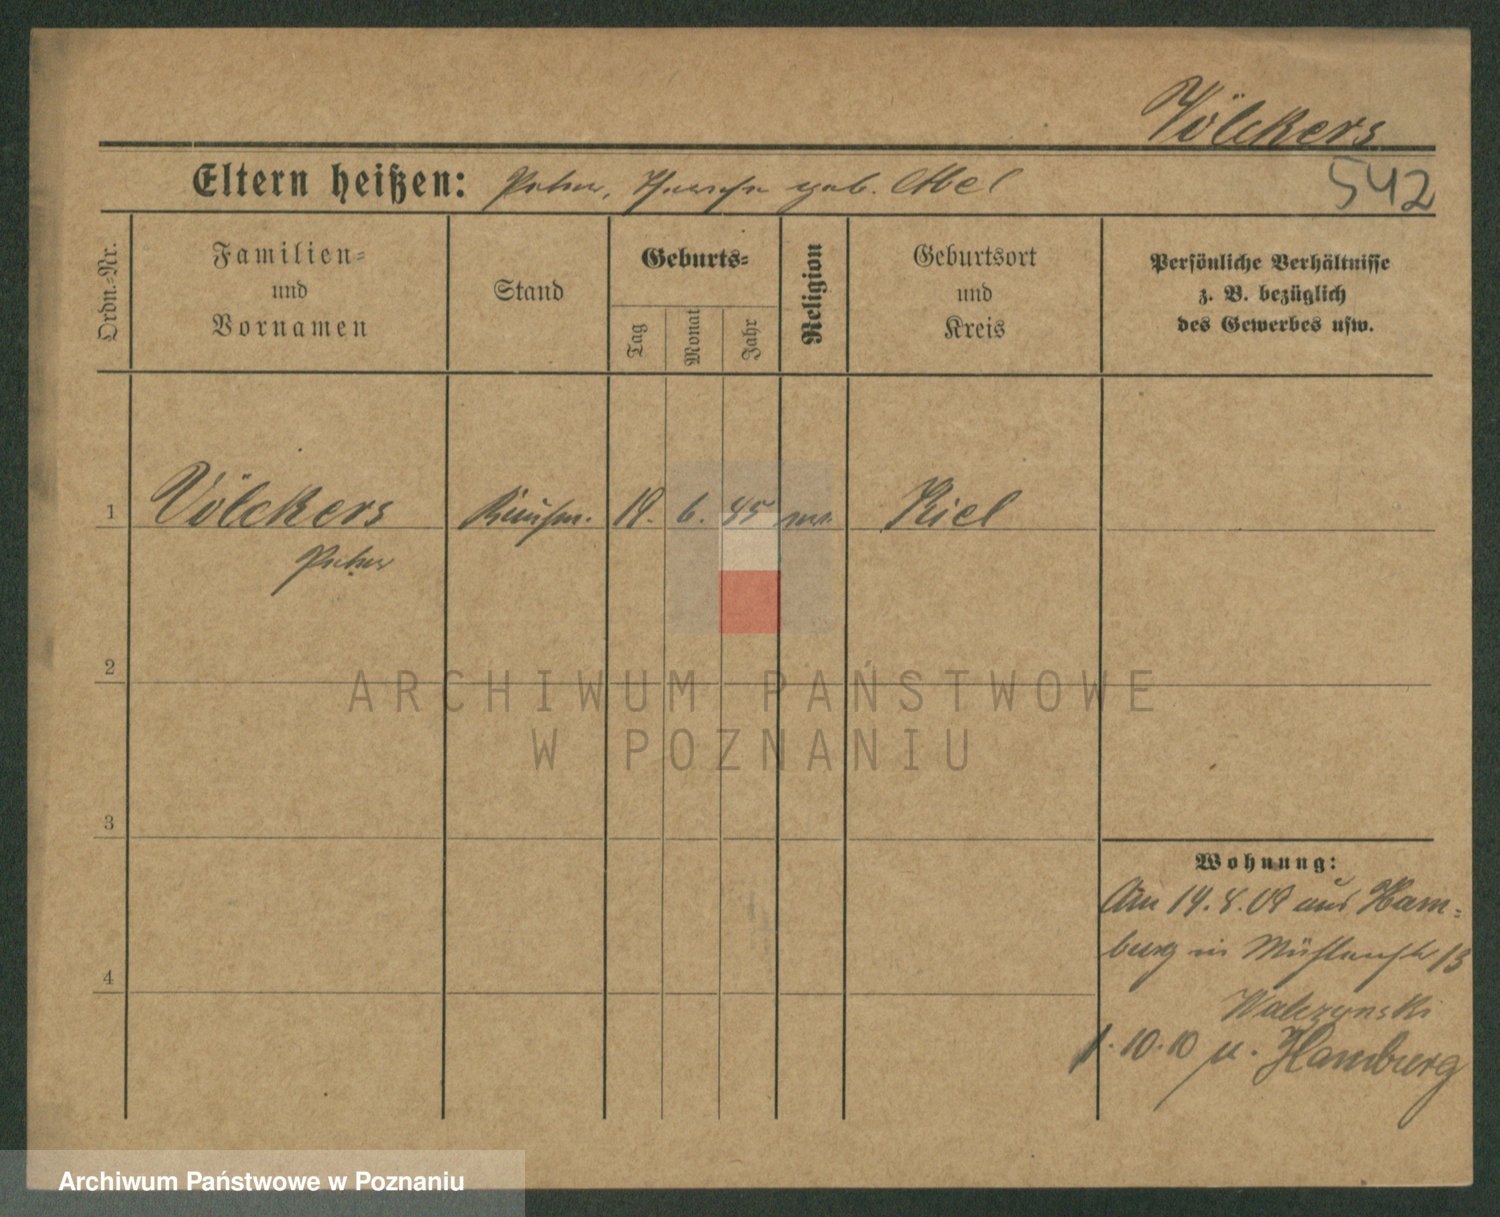 Völckers
542
Eltern heißen: Peter, geb. Abel
Ordn.-Nr.
Familien-
und
Vornamen
Stand
Geburts-
Tag
Monat
Jahr
Religion
Geburtsort
und
Kreis
Persönliche Verhältnisse
z. B. bezüglich
des Gewerbes usw.
1 Völckers Kaufm. 6. 85 Kiel
Peter
2
ARCHIWUM PAŃSTWOWE
W POZNANIU
3
Wohnung:
Am 14. 8. 09 aus Ham-
burg in Mühlenstr 13
4
1. 10. 10 n. Hamburg
Archiwum Państwowe w Poznaniu